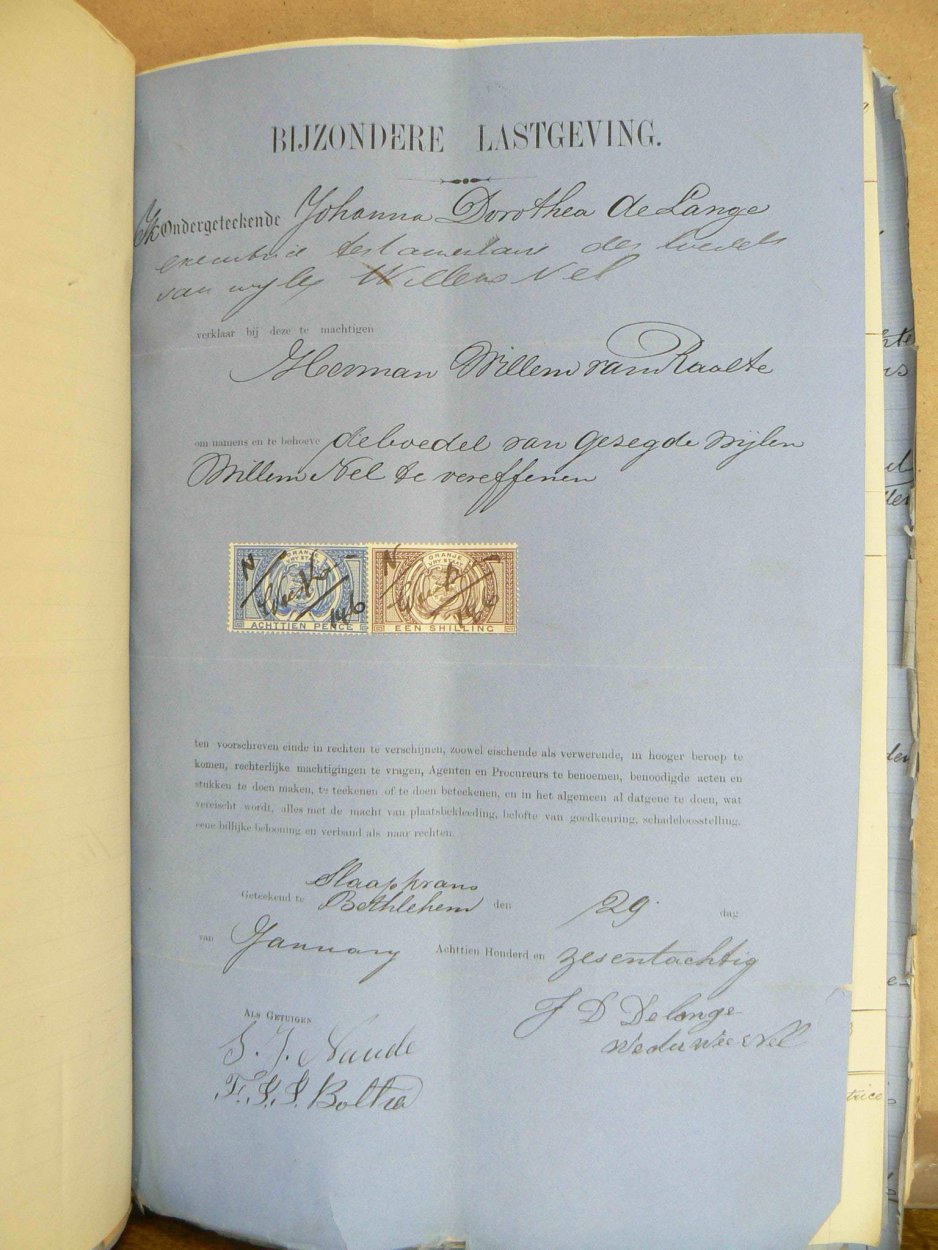 BIJZONDERE LASTGEVING.
Ik Ondergeteekende Johanna Dorothea de Lange
executrice testamentaire des boedels
van wijlen Willem Nel
verklaar bij deze te machtigen
Herman Willem van Raalte
om namens en te behoeve de boedel van gezegde wijlen
Willem Nel te vereffenen
ORANJE VRY STAAT
ACHTTIEN PENCE
ORANJE VRY STAAT
EEN SHILLING
ten voorschreven einde in rechten te verschijnen, zoowel eischende als verwerende, in hooger beroep te
komen, rechterlijke machtigingen te vragen, Agenten en Procureurs te benoemen, benoodigde acten en
stukken te doen maken, te teekenen of te doen beteekenen, en in het algemeen al datgene te doen, wat
vereischt wordt, alles met de macht van plaatsbekleeding, belofte van goedkeuring, schadeloosstelling,
eene billijke belooning en verband als naar rechten.
Slaapkrans
Geteekend te Bethlehem den 29 dag
van January Achttien Honderd en zesentachtig
J D De lange
Weduwee Nel
ALS GETUIGEN
S. J. Naude